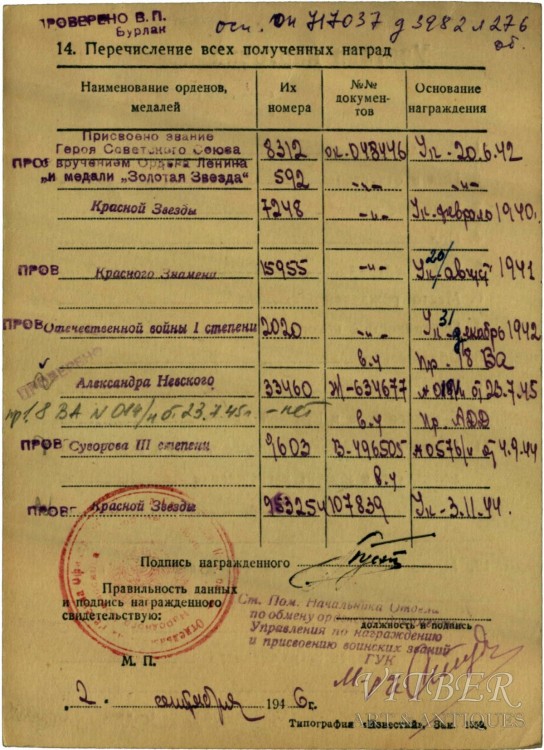 ПРОВЕРЕНО В.П.
Бурлак
осн. оп 717037 д 3982 л 276
об.
14. Перечисление всех полученных наград
Наименование орденов, медалей
Их номера
№№ документов
Основание награждения
Присвоено звание
Героя Советского Союза 8312 ок-048446 Ук-20.6.42
ПРОВ вручением Ордена Ленина
„и медали „Золотая Звезда“ 592 -„- -„-
Красной Звезды 7248 -„- Ук-февраль 1940г.
20/
ПРОВ Красного Знамени 15955 -„- Ук-август 1941
31
ПРОВ Отечественной войны I степени 2020 -„- Ук-декабрь 1942
ПРОВЕРЕНО в.у пр. 18 ВА
Александра Невского 33460 Ж-634677 от 23.7.45
пр. 18 ВА N 014/н б. 23.7.45г -нет в.у Пр. АДД
ПРОВ Суворова III степени 9603 В-496505 №057б/н от 4.9.44
в.у
ПРОВ Красной Звезды 953254 107839 Ук-3.11.44
Подпись награжденного
Правильность данных
и подпись награжденного
свидетельствую:
Ст. Пом. Начальника Отдела
по обмену
должность и подпись
Управления по награждению
и присвоению воинских званий
ГУК
М. П.
„2 сентября 1946г.
VITBER
ART & ANTIQUES
Типография «Известий». Зак.